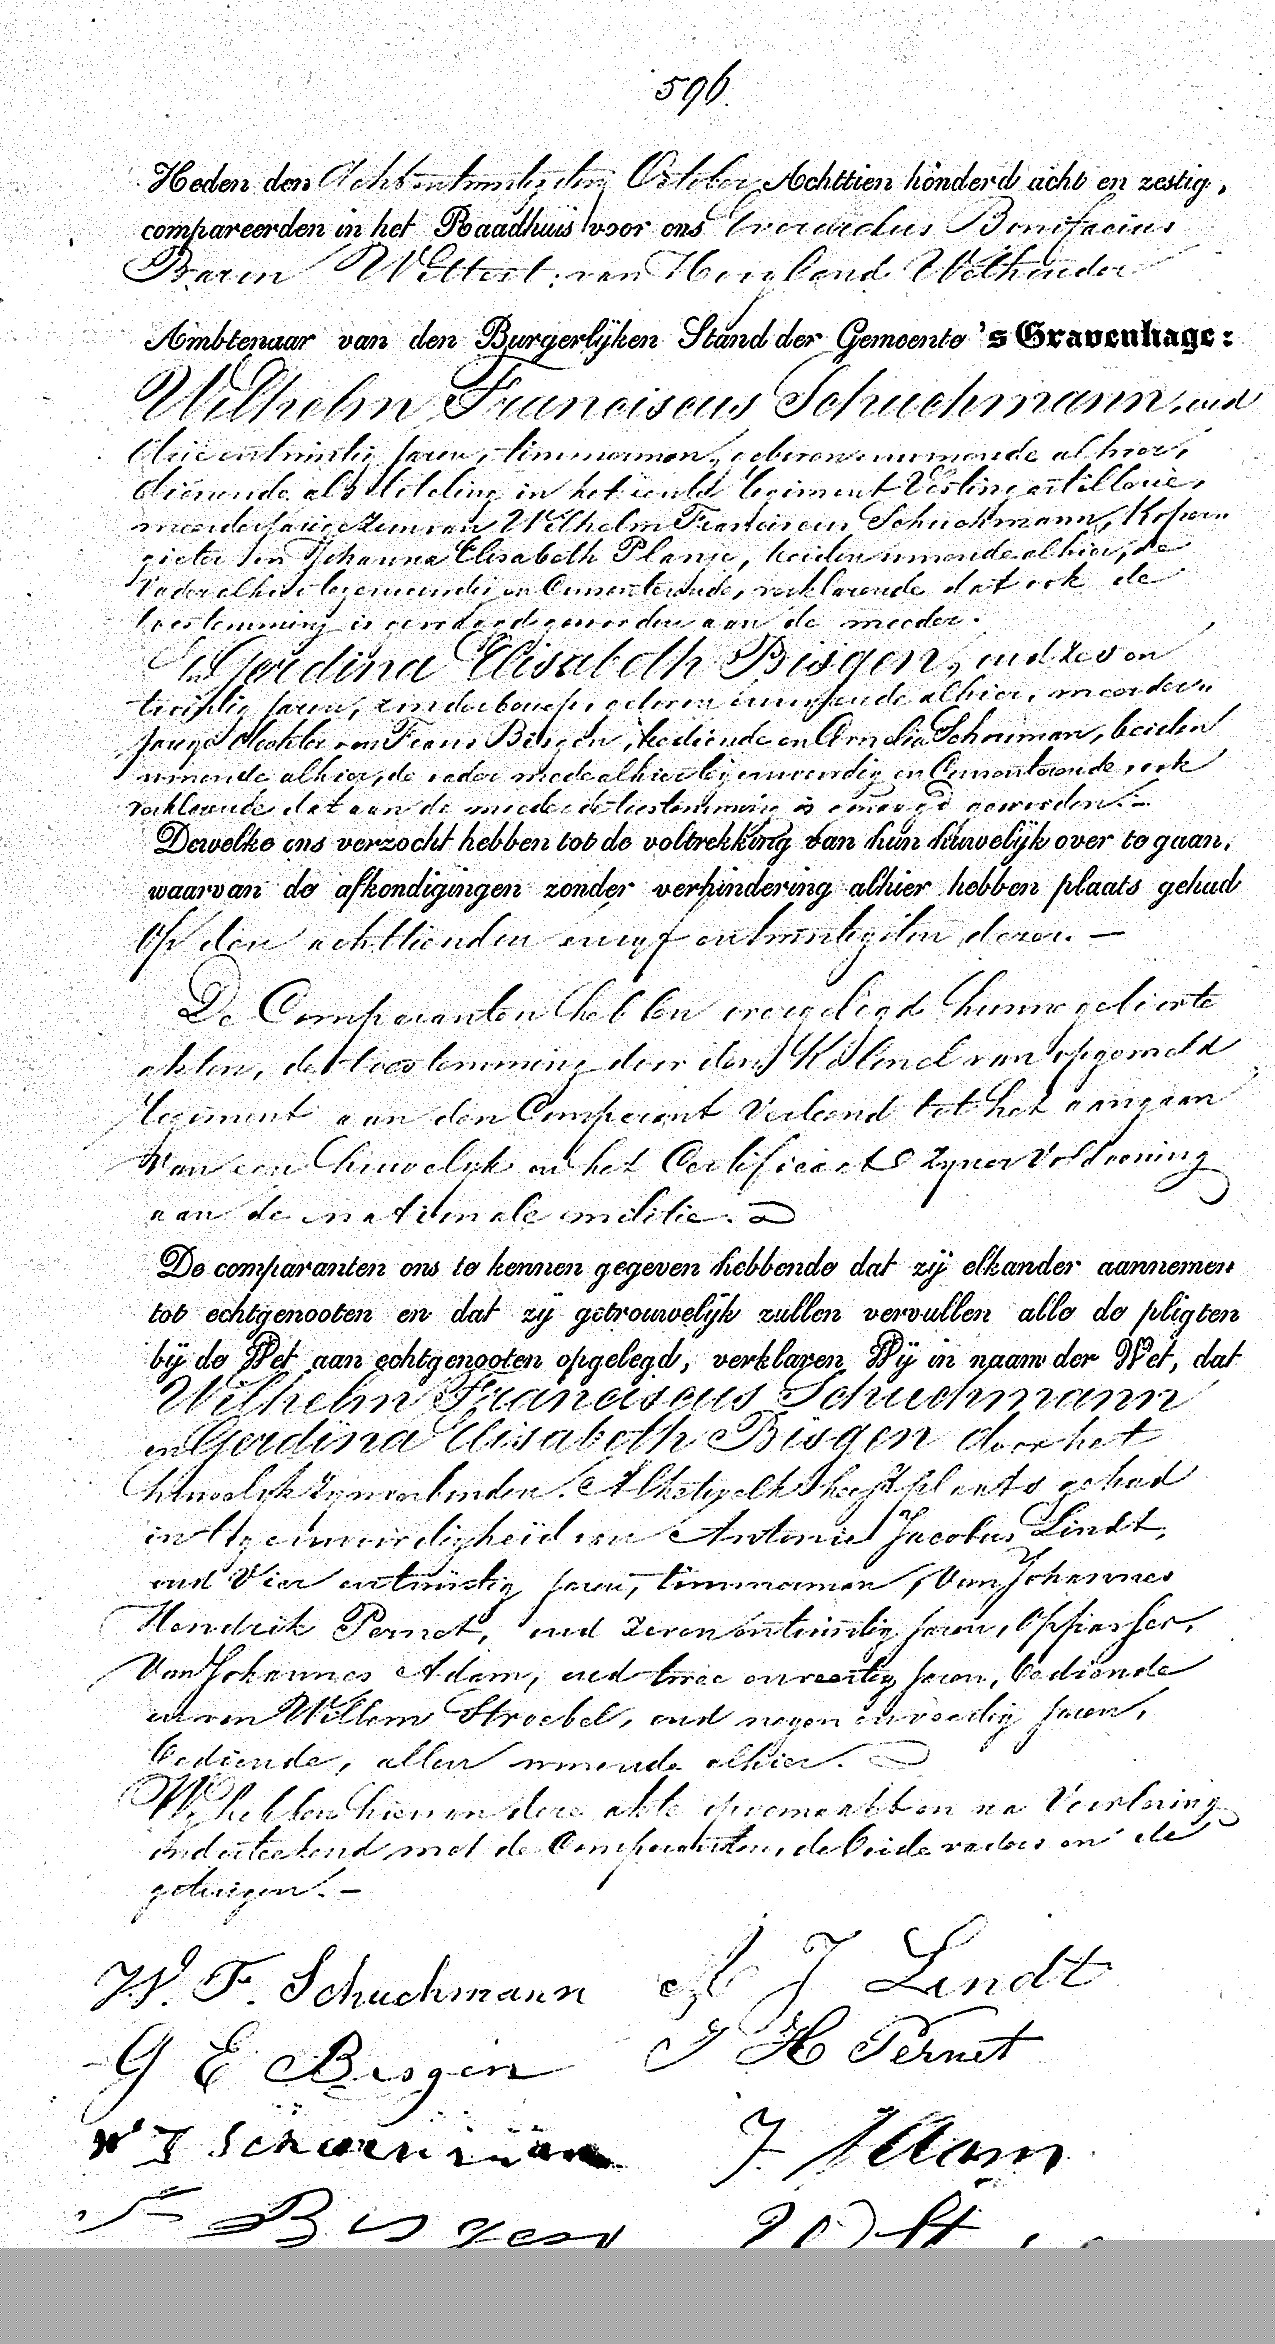 596.
Heden den Achtentwintigsten October Achttien honderd acht en zestig,
compareerden in het Raadhuis voor ons Everardus Bonifacius
Baron Wittert van Hoogland Wethouder
Ambtenaar van den Burgerlijken Stand der Gemeente 's Gravenhage:
Wilhelm Franciscus Schuchmann, oud
drie entwintig jaren, timmerman, geboren en wonende alhier,
dienende als loteling in het regiment Vesting artillerie,
meerderjarige zoon van Wilhelm Franciscus Schuchmann, Koper-
gieter en Johanna Elisabeth Planje, beiden wonende alhier, de
Vader alhier tegenwoordig en Consenterende, verklarende dat ook de
toestemming is gevraagd geworden aan de moeder.
En Gerdina Elisabeth Bisgen, oud zeven
twintig jaren, zonder beroep, geboren en wonende alhier, meerder-
jarige dochter van Frans Bisgen, bediende en Cornelia Schouman, beiden
wonende alhier, de vader mede alhier tegenwoordig en Consenterende, ook
verklarende dat aan de moeder de toestemming is gevraagd geworden.-
Dewelke ons verzocht hebben tot de voltrekking van hun huwelijk over te gaan,
waarvan de afkondigingen zonder verhindering alhier hebben plaats gehad
Op den achttienden en vijf entwintigsten dezer. —
De Comparanten hebben overgelegd hunne geboorte
akten, de toestemming door den Kolonel van opgemeld
regiment aan den Comparant Verleend tot het aangaan
Van een huwelijk en het Certificaat zyner Voldoening
aan de nationale militie.
De comparanten ons te kennen gegeven hebbende dat zij elkander aannemen
tot echtgenooten en dat zij getrouwelijk zullen vervullen alle de pligten
bij de Wet aan echtgenooten opgelegd, verklaren Wij in naam der Wet, dat
Wilhelm Franciscus Schuchmann
en Gerdina Elisabeth Bisgen door het
huwelyk zyn verbonden. Al hetwelk heeft plaats gehad
in tegenwoordigheid van Antonie Jacobus Lindt,
oud Vier entwintig jaren, timmerman, Van Johannes
Hendrik Pernet, oud zeven entwintig jaren, Oppasser,
Van Johannes Adam, oud twee en veertig jaren, bediende
en van Willem Stroebel, oud negen en veertig jaren,
bediende, allen wonende alhier.
Wij hebben hiervan deze akte opgemaakt en na Voorlezing
onderteekend met de Comparanten, de beide vaders en de
getuigen. —
W. F. Schuchmann A J Lindt
G E Bisgen J H Pernet
W F Schuchmann J. Adam
F Bisgen